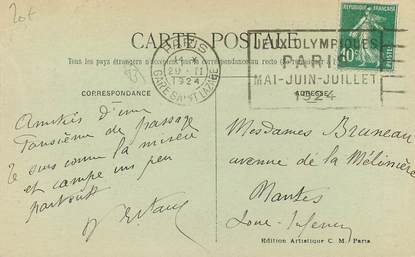 20€
RÉPUBLIQUE FRANÇAISE
10c
CARTE POSTALE
Tous les pays étrangers n'acceptent pas la correspondance au recto
PARIS
20 - II
1924
GARE SAINT LAZARE
JEUX OLYMPIQUES
PARIS
MAI-JUIN-JUILLET
1924
CORRESPONDANCE
ADRESSE
Amitiés d'une
Parisienne de passage
Je suis comme la misère
et campe un peu
partout
Mesdames Bruneau
avenue de la Mélinière
Nantes
Loire-Inférieure
Edition Artistique C. M. Paris